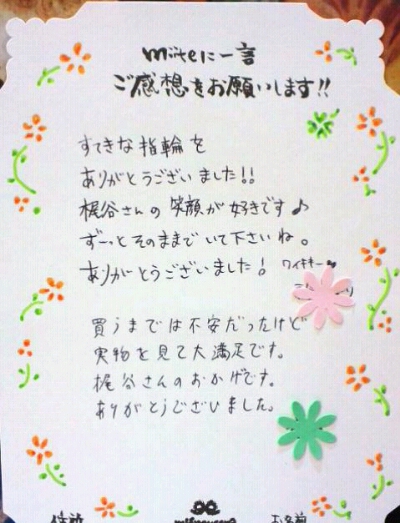 miiteに一言
ご感想をお願いします!!
すてきな指輪を
ありがとうございました!!
梶谷さんの笑顔が好きです♪
ずーっとそのままでいて下さいね。
ありがとうございました! ワイキキー
買うまでは不安だったけど
実物を見て大満足です。
梶谷さんのおかげです。
ありがとうございました。